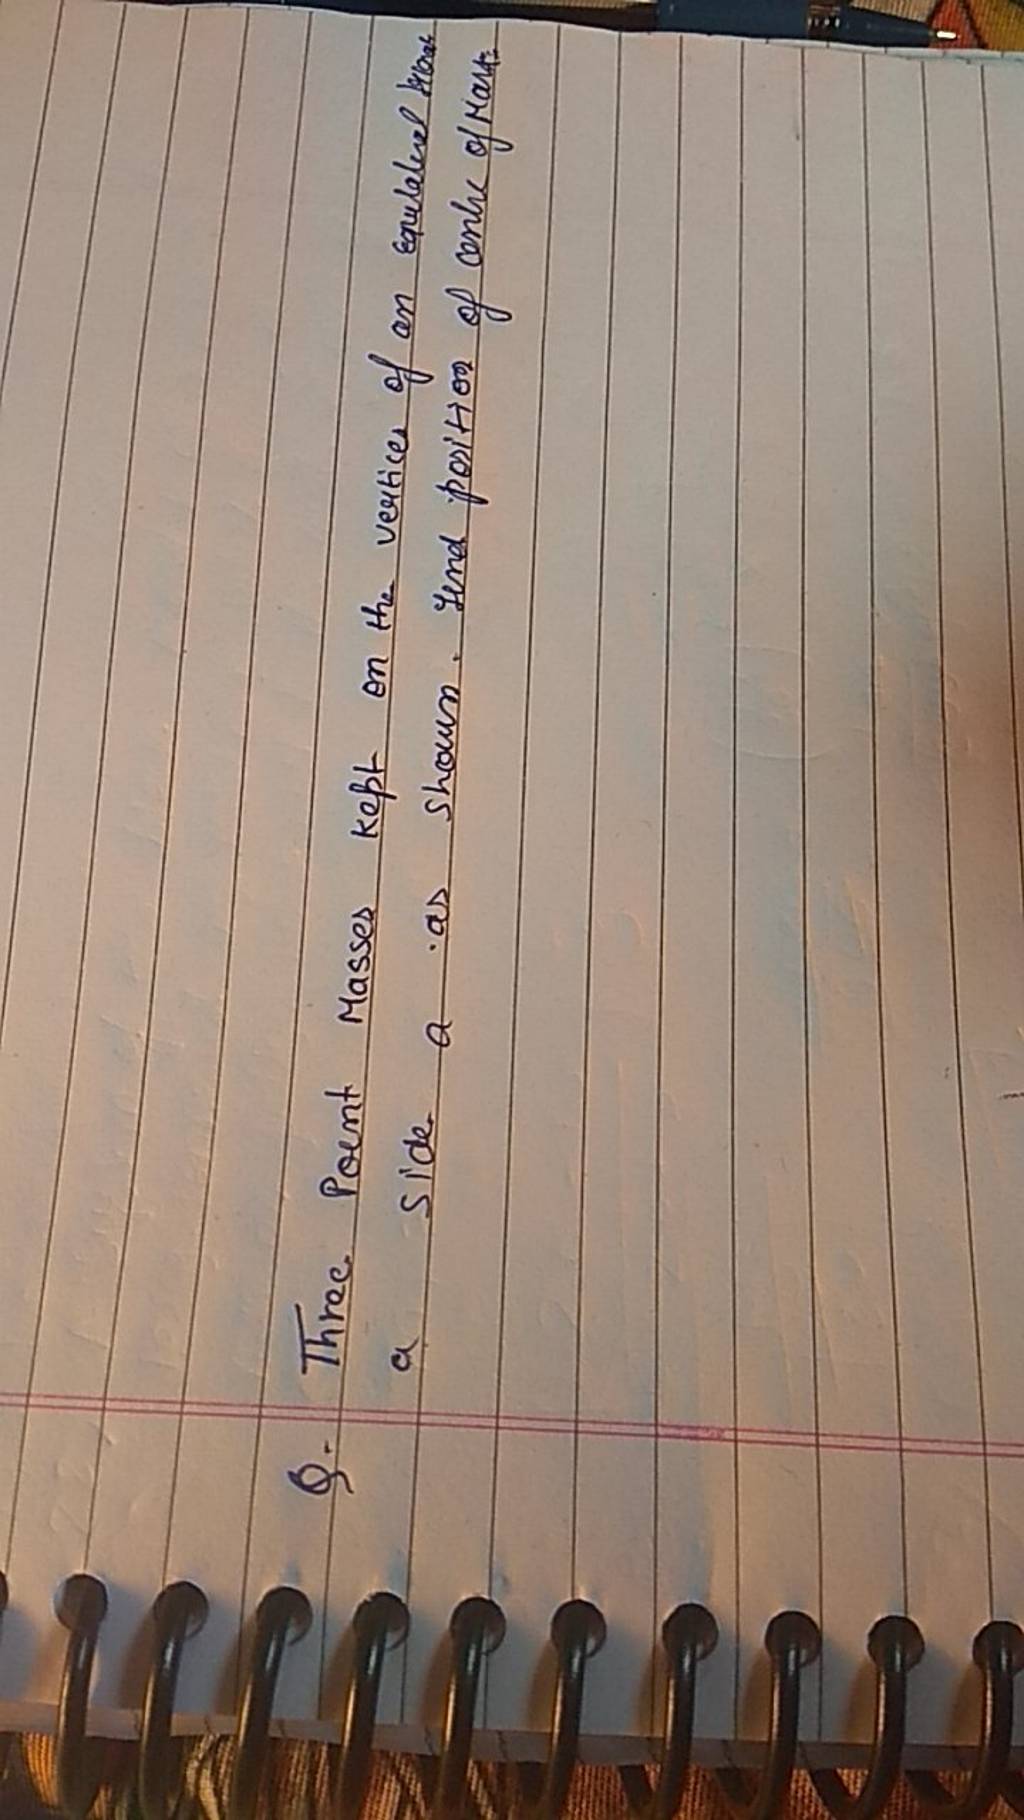 Q. Three Point Masses kept on the vertices of an equilateral
a side a as shown. Find position of centre of Mass.